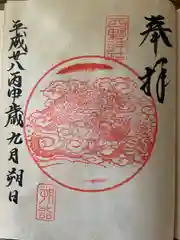 奉拝
平成廿八丙申歳九月朔日